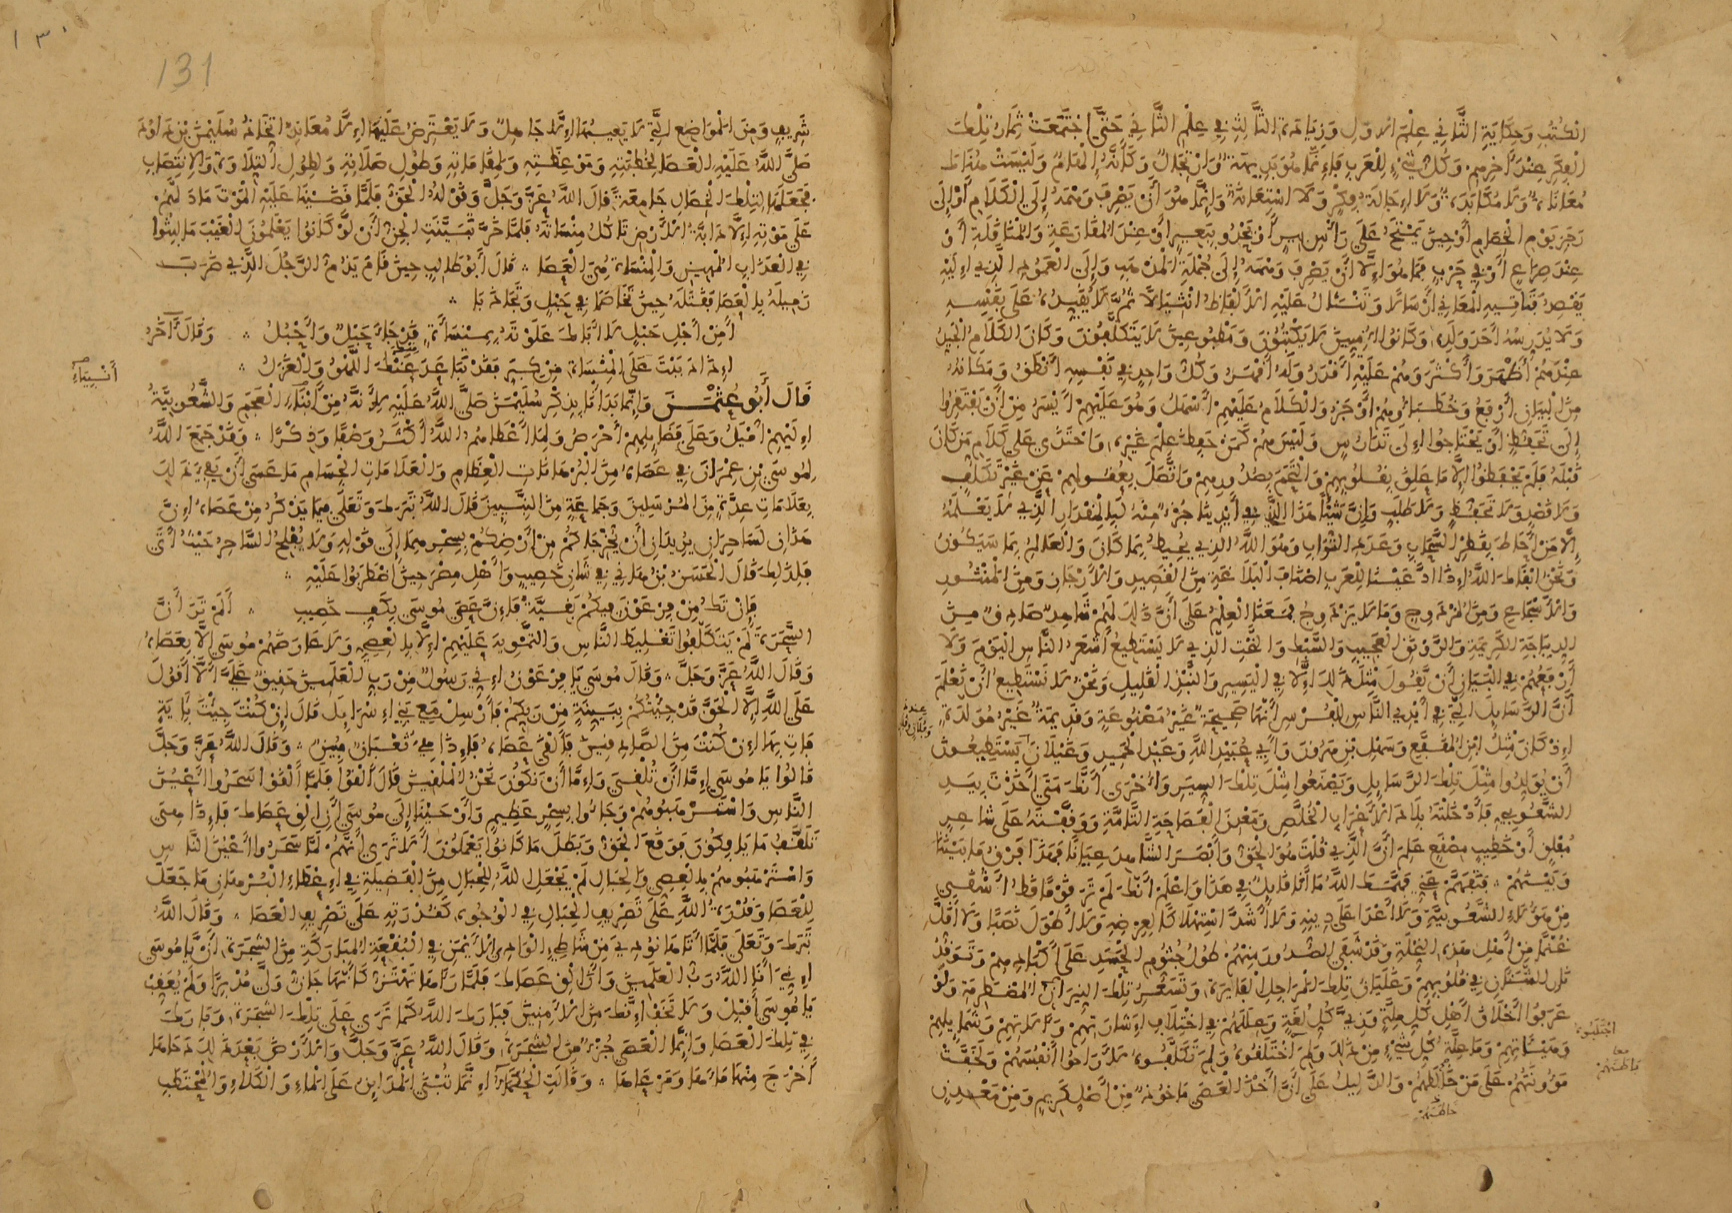 الكتب وحكاية الثاني علم الاول وزيادة الثالث في علم الثاني حتى اجتمعت ثمار تلك
الفكر عند اخرهم وكل شيء للعرب فإنما هو بديهة وارتجال وكأنه إلهام وليست هناك
معاناة ولا مكابدة ولا إجالة فكر ولا استعانة وإنما هو أن يصرف وهمه إلى الكلام أو إلى
رجز يوم الخصام أو حين يمتح على رأس بئر أو يحدو ببعير أو عند المقارعة والمناقلة أو
عند صراع أو في حرب فما هو إلا أن يصرف وهمه إلى جملة المذهب وإلى العمود الذي إليه
يقصد فتاتيه المعاني أرسالا وتنثال عليه الألفاظ انثيالا ثم لا يقيده على نفسه
ولا يدرسه أحد ولده وكانوا أميين لا يكتبون ومطبوعين لا يتكلفون وكان الكلام الجيد
عندهم أظهر وأكثر وهم عليه أقدر وله أقهر وكل واحد في نفسه أنطق ومكانه
من البيان أرفع وخطباؤهم أوجز والكلام عليهم أسهل وهو عليهم أيسر من أن يفتقروا
إلى تحفظ أو يحتاجوا إلى تدارس وليس هم كمن حفظ علم غيره واحتذى على كلام من كان
قبله فلم يحفظوا إلا ما علق بقلوبهم والتحم بصدورهم واتصل بعقولهم عن غير تكلف
ولا قصد ولا تحفظ ولا طلب وإن شيئا هذا الذي في أيدينا جزء منه لبالمقدار الذي لا يعلمه
إلا من أحاط بقطر السحاب وعدد التراب وهو الله الذي يحيط بما كان والعالم بما سيكون
ونحن أبقاك الله إذا ادعينا للعرب أصناف البلاغة من القصيد والأرجاز ومن المنثور
والأسجاع ومن المزدوج وما لا يزدوج فمعنا العلم على أن ذلك لهم شاهد صادق من
الديباجة الكريمة والرونق العجيب والسبك والنحت الذي لا يستطيع أشعر الناس اليوم ولا
أرفعهم في البيان أن يقول مثل ذلك إلا في اليسير والنبذ القليل ونحن لا نستطيع أن نعلم
أن الرسائل التي في أيدي الناس للفرس أنها صحيحة غير مصنوعة وقديمة غير مولدة
إذ كان مثل ابن المقفع وسهل بن هرون وأبي عبيد الله وعبد الحميد وغيلان يستطيعون
أن يولدوا مثل تلك الرسائل ويصنعوا مثل تلك السير وأخرى أنك متى أخذت بيد
الشعوبي فأدخلته بلاد الأعراب الخلص ومعدن الفصاحة التامة ووقفته على شاعر
مفلق أو خطيب مصقع علم أن الذي قلت هو الحق وأبصر الشاهد عيانا فهذا فرق ما بيننا
وبينهم فتفهم عني فهمك الله ما أنا قائل في هذا واعلم أنك لم تر قوما قط أشقى
من هؤلاء الشعوبية ولا أعدا على دينه ولا أشد استهلاكا لعرضه ولا أطول نصبا ولا أقل
غنما من أهل هذه النحلة وقد شفى الصدور منهم طول جثوم الحسد على أكبادهم وتوقد
نار الشنآن في قلوبهم وغليان تلك المراجل الفائرة وتسعر تلك النيران المضطرمة ولو
عرفوا أخلاق أهل كل ملة وزي كل لغة وعللهم في اختلاف إشاراتهم وآلاتهم وشمايلهم
وهيئاتهم وما علة كل شيء من ذلك ولم اختلفوه ولم تكلفوه لأراحوا أنفسهم ولخفت
مؤونتهم على من خالطهم والدليل على أن أخذ العصى ماخوذ من أصل كريم ومن معدن
اجتلبوه
معا
خالطهم
131
شريف ومن المواضع التي لا يعيبها إلا جاهل ولا يعترض عليها إلا معاند اتخاذ سليمن بن داود
صلى الله عليه العصا لخطبته وموعظته ولمقاماته وطول صلاته ولطول التلاوة والانتصاب
فجعلها لتلك الخصال جامعة قال الله عز وجل وقوله الحق فلما قضينا عليه الموت ما دلهم
على موته إلا دابة الأرض تاكل منسأته فلما خر تبينت الجن أن لو كانوا يعلمون الغيب ما لبثوا
في العذاب المهين والمنسأة هي العصا قال أبو طالب حين قام يذم الرجل الذي ضرب
زميله بالعصا فقتله حين تخاصما في حبل وتجاذبا
أمن أجل حبل لا أباك علوته بمنسأة قد جاء حبل وأحبل وقال آخر
إذا دببت على المنساة من كبر فقد تباعد عنك اللهو والغزل
قال أبو عثمن وإنما بدأنا بذكر سليمن صلى الله عليه لأنه من أبناء العجم والشعوبية
إليهم أميل وعلى فضايلهم أحرص ولما أعطاهم الله أكثر وصفا وذكرا وقد جمع الله
لموسى بن عمران في عصاه من البرهانات العظام والعلامات الجسام ما عسى أن يفي ذلك
بعلامات عدة من المرسلين وجماعة من النبيين قال الله تبرك وتعلى فيما يذكر من عصاه إن
هذان لساحران يريدان أن يخرجاكم من أرضكم بسحرهما إلى قوله ولا يفلح الساحر حيث أتى
فلذلك قال الحسن بن هانئ في شأن خصيب وأهل مصر حين اضطربوا عليه
فإن تك من فرعون فيكم بقية فإن عصى موسى بكف خصيب ألم تر أن
السحرة لم يتكلفوا تغليط الناس والتمويه عليهم إلا بالعصي ولا عارضهم موسى إلا بعصاه
وقال الله عز وجل وقال موسى يا فرعون إني رسول من رب العلمين حقيق على ألا أقول
على الله إلا الحق قد جئتكم ببينة من ربكم فأرسل معي بني إسراءيل قال إن كنت جئت بآية
فات بها إن كنت من الصادقين فألقى عصاه فإذا هي ثعبان مبين وقال الله عز وجل
قالوا يا موسى إما أن تلقي وإما أن نكون نحن الملقين قال ألقوا فلما ألقوا سحروا أعين
الناس واسترهبوهم وجاءوا بسحر عظيم وأوحينا إلى موسى أن الق عصاك فإذا هي
تلقف ما يافكون فوقع الحق وبطل ما كانوا يعملون ألا ترى أنهم لما سحروا أعين الناس
واسترهبوهم بالعصي والحبال لم يجعل الله للحبال من الفضيلة في إعطاء البرهان ما جعل
للعصا وقدرة الله على تصريف الحبال في الوجوه كقدرته على تصريف العصا وقال الله
تبرك وتعلى فلما أتاها نودي من شاطئ الوادي الأيمن في البقعة المباركة من الشجرة أن يا موسى
إني أنا الله رب العلمين وأن الق عصاك فلما رءاها تهتز كأنها جان ولى مدبرا ولم يعقب
يا موسى أقبل ولا تخف إنك من الأمنين فبارك الله كما ترى على تلك الشجرة وبارك
في تلك العصا وإنما العصى جزء من الشجرة وقال الله عز وجل والأرض بعد ذلك دحاها
أخرج منها ماءها ومرعاها وقالت الحكماء إنما تبنى المداين على الماء والكلاء والمحتطب
أنبياء